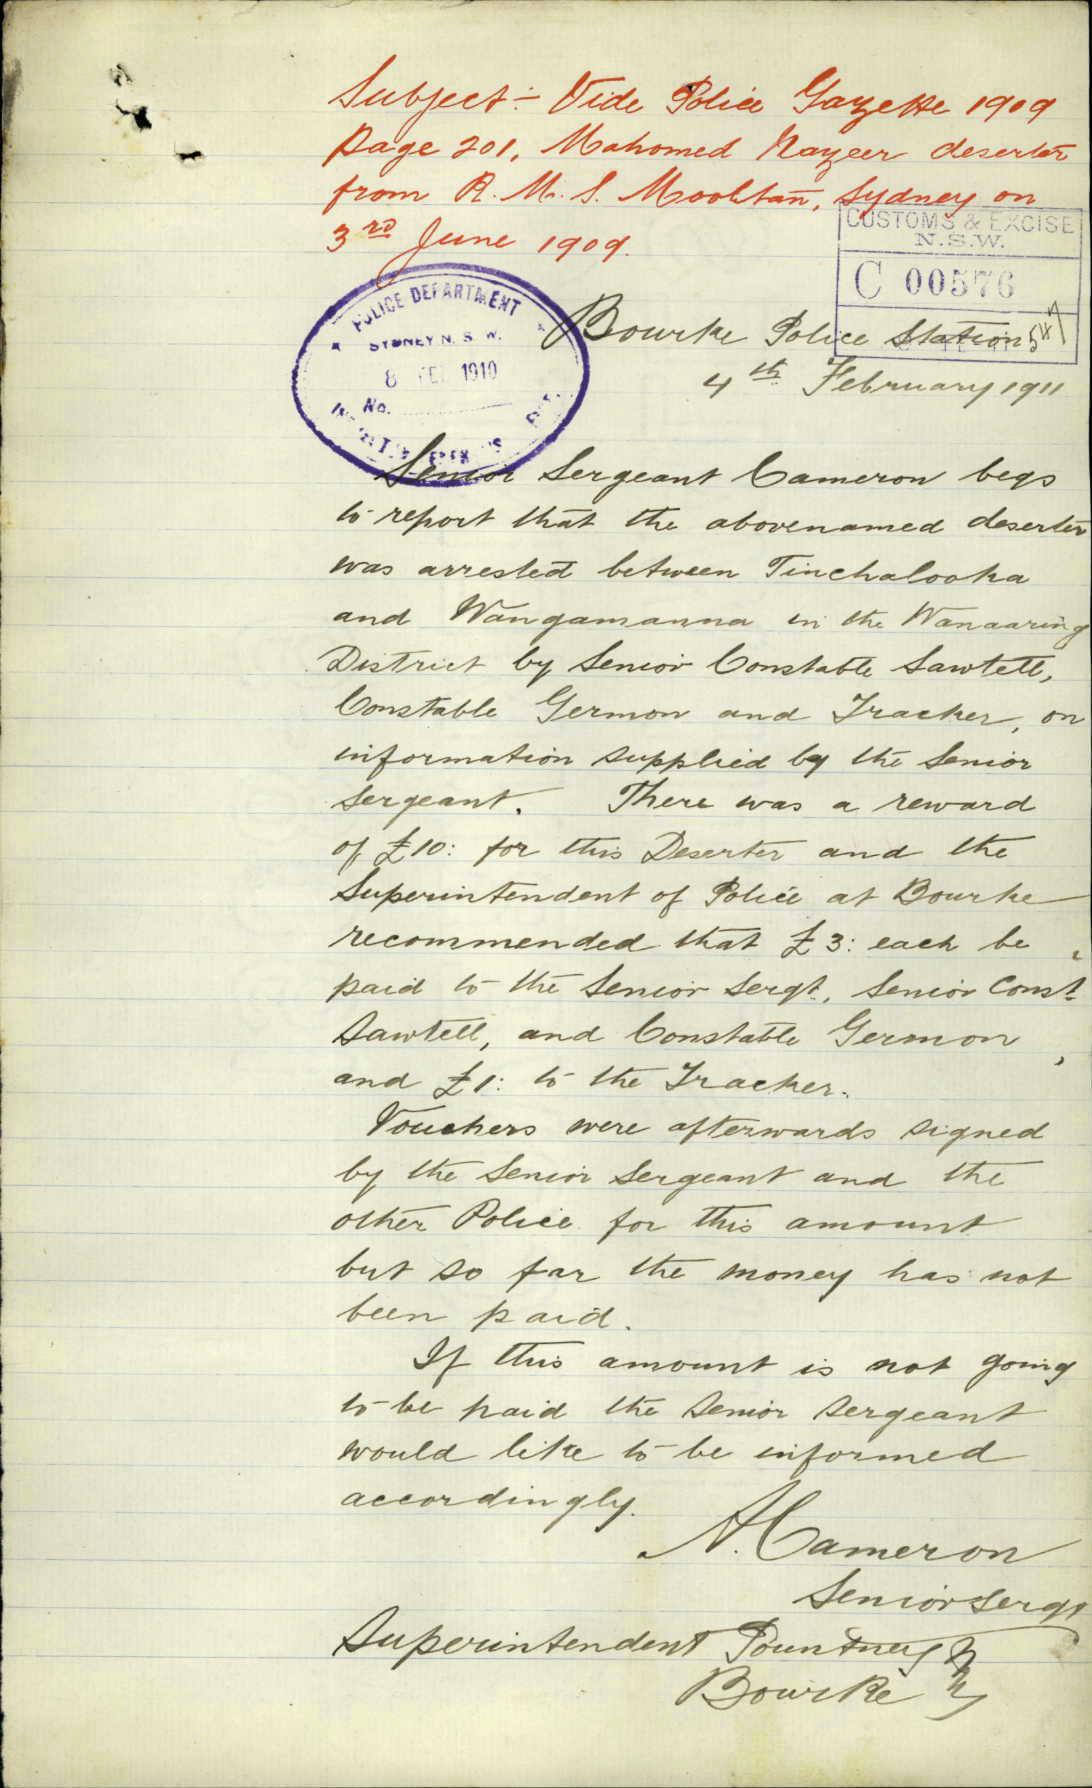 Subject:- Vide Police Gazette 1909
page 201, Mahomed Nazeer deserter
from R. M. S. Mooltan, Sydney on
3rd June 1909.
CUSTOMS & EXCISE
N.S.W.
C 00576
POLICE DEPARTMENT
SYDNEY N. S. W.
8 1910
No.
Bourke Police Station
4th February 1911
Senior Sergeant Cameron begs
to report that the abovenamed deserter
was arrested between Tinchalooka
and Wangamanna in the Wanaaring
District by Senior Constable Sawtell,
Constable Germon and Tracker, on
information supplied by the Senior
Sergeant. There was a reward
of £10: for this Deserter and the
Superintendent of Police at Bourke
recommended that £3: each be
paid to the Senior Sergt., Senior Const.
Sawtell, and Constable Germon,
and £1: to the Tracker.
Vouchers were afterwards signed
by the Senior Sergeant and the
other Police for this amount
but so far the money has not
been paid.
If this amount is not going
to be paid the Senior Sergeant
would like to be informed
accordingly.
A. Cameron
Senior Sergt
Superintendent Pountney
Bourke